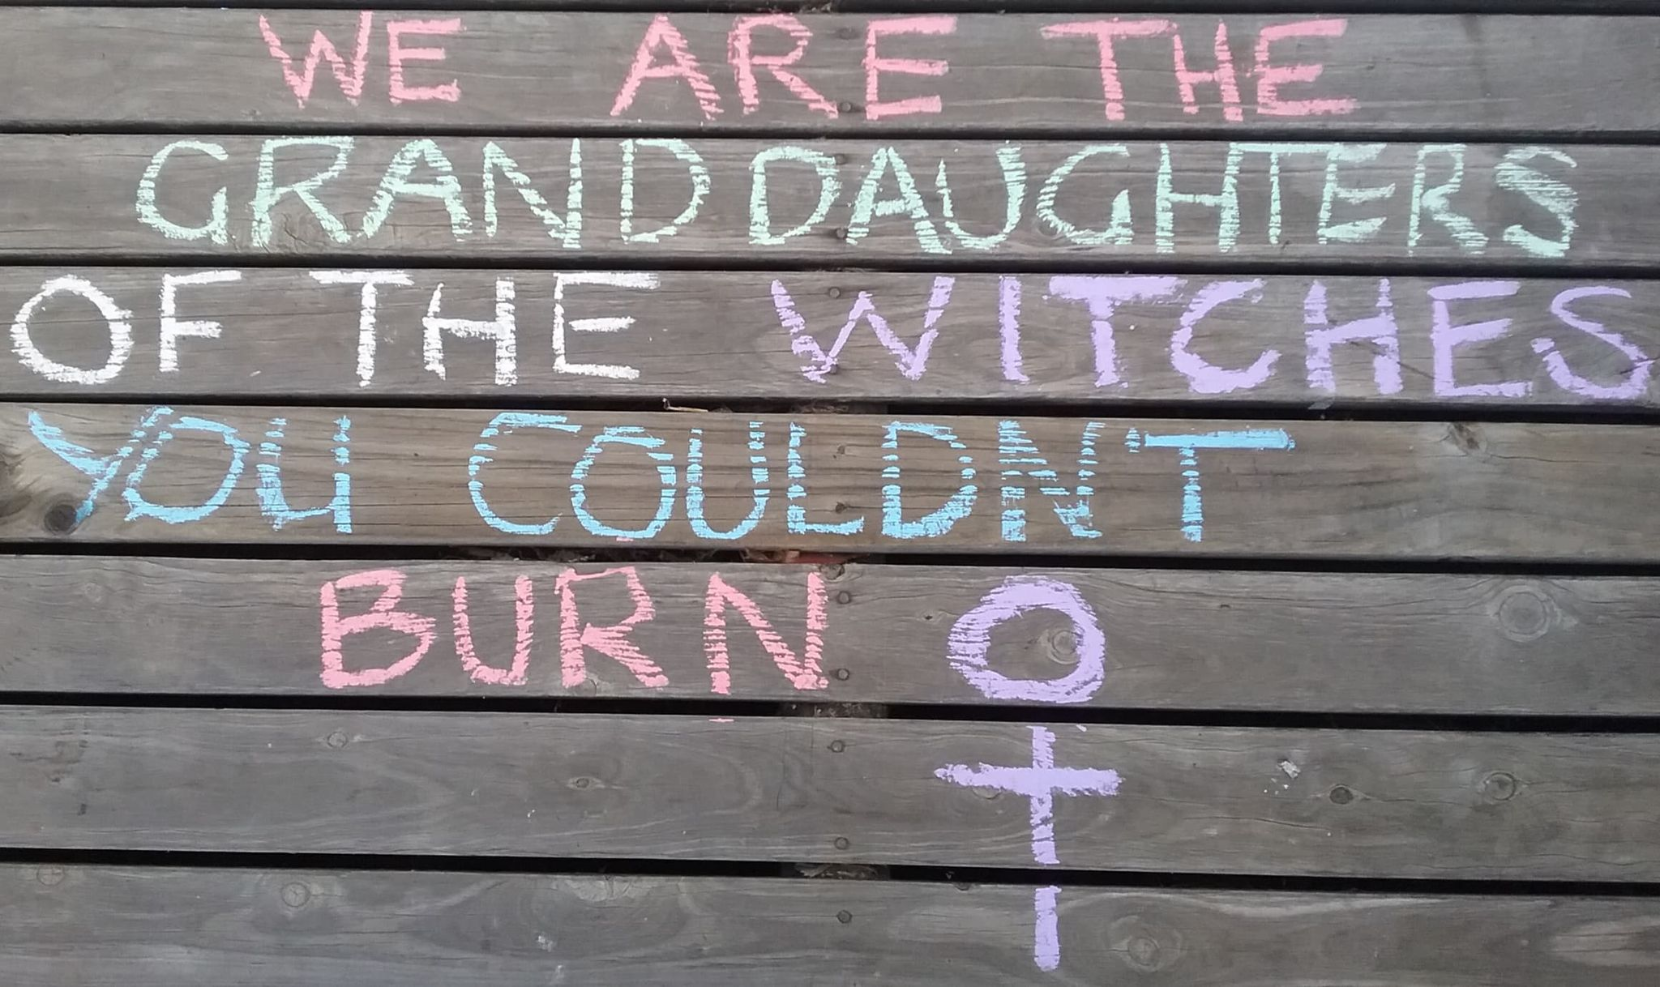 WE ARE THE
GRANDDAUGHTERS
OF THE WITCHES
YOU COULDNT
BURN